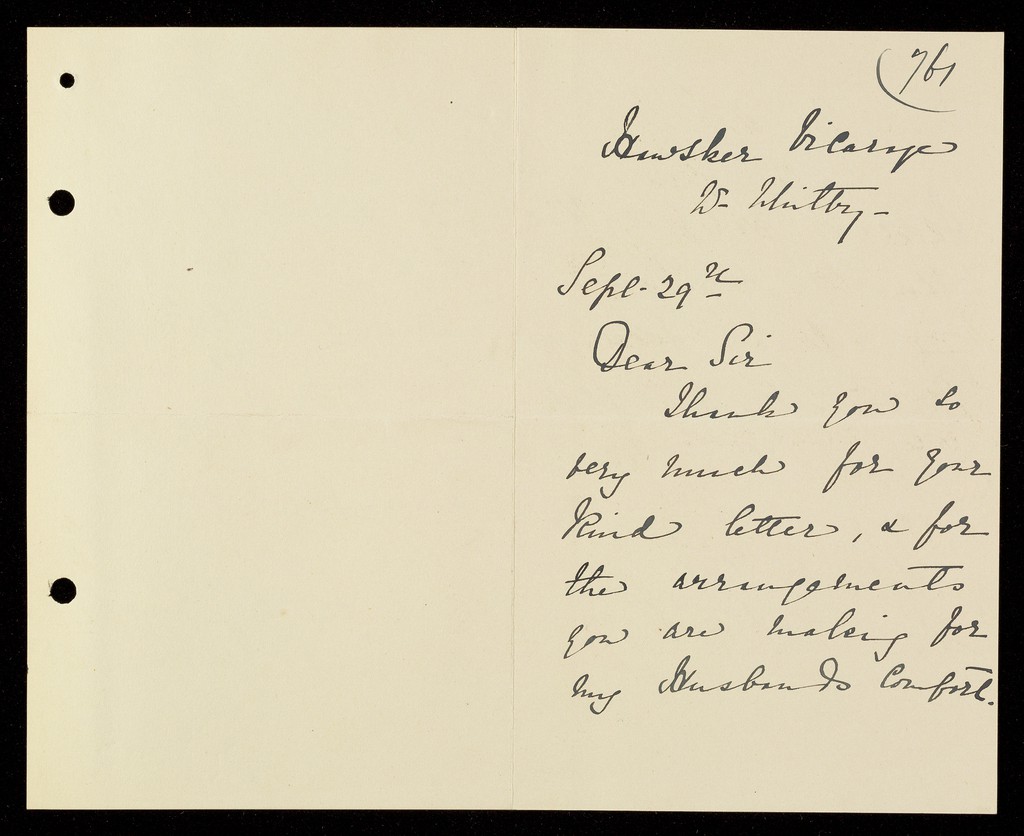 761
Hawsker Vicarage
Nr Whitby -
Sept - 29th
Dear Sir
Thank you so
very much for your
kind letter, & for
the arrangements
you are making for
my Husbands comfort.